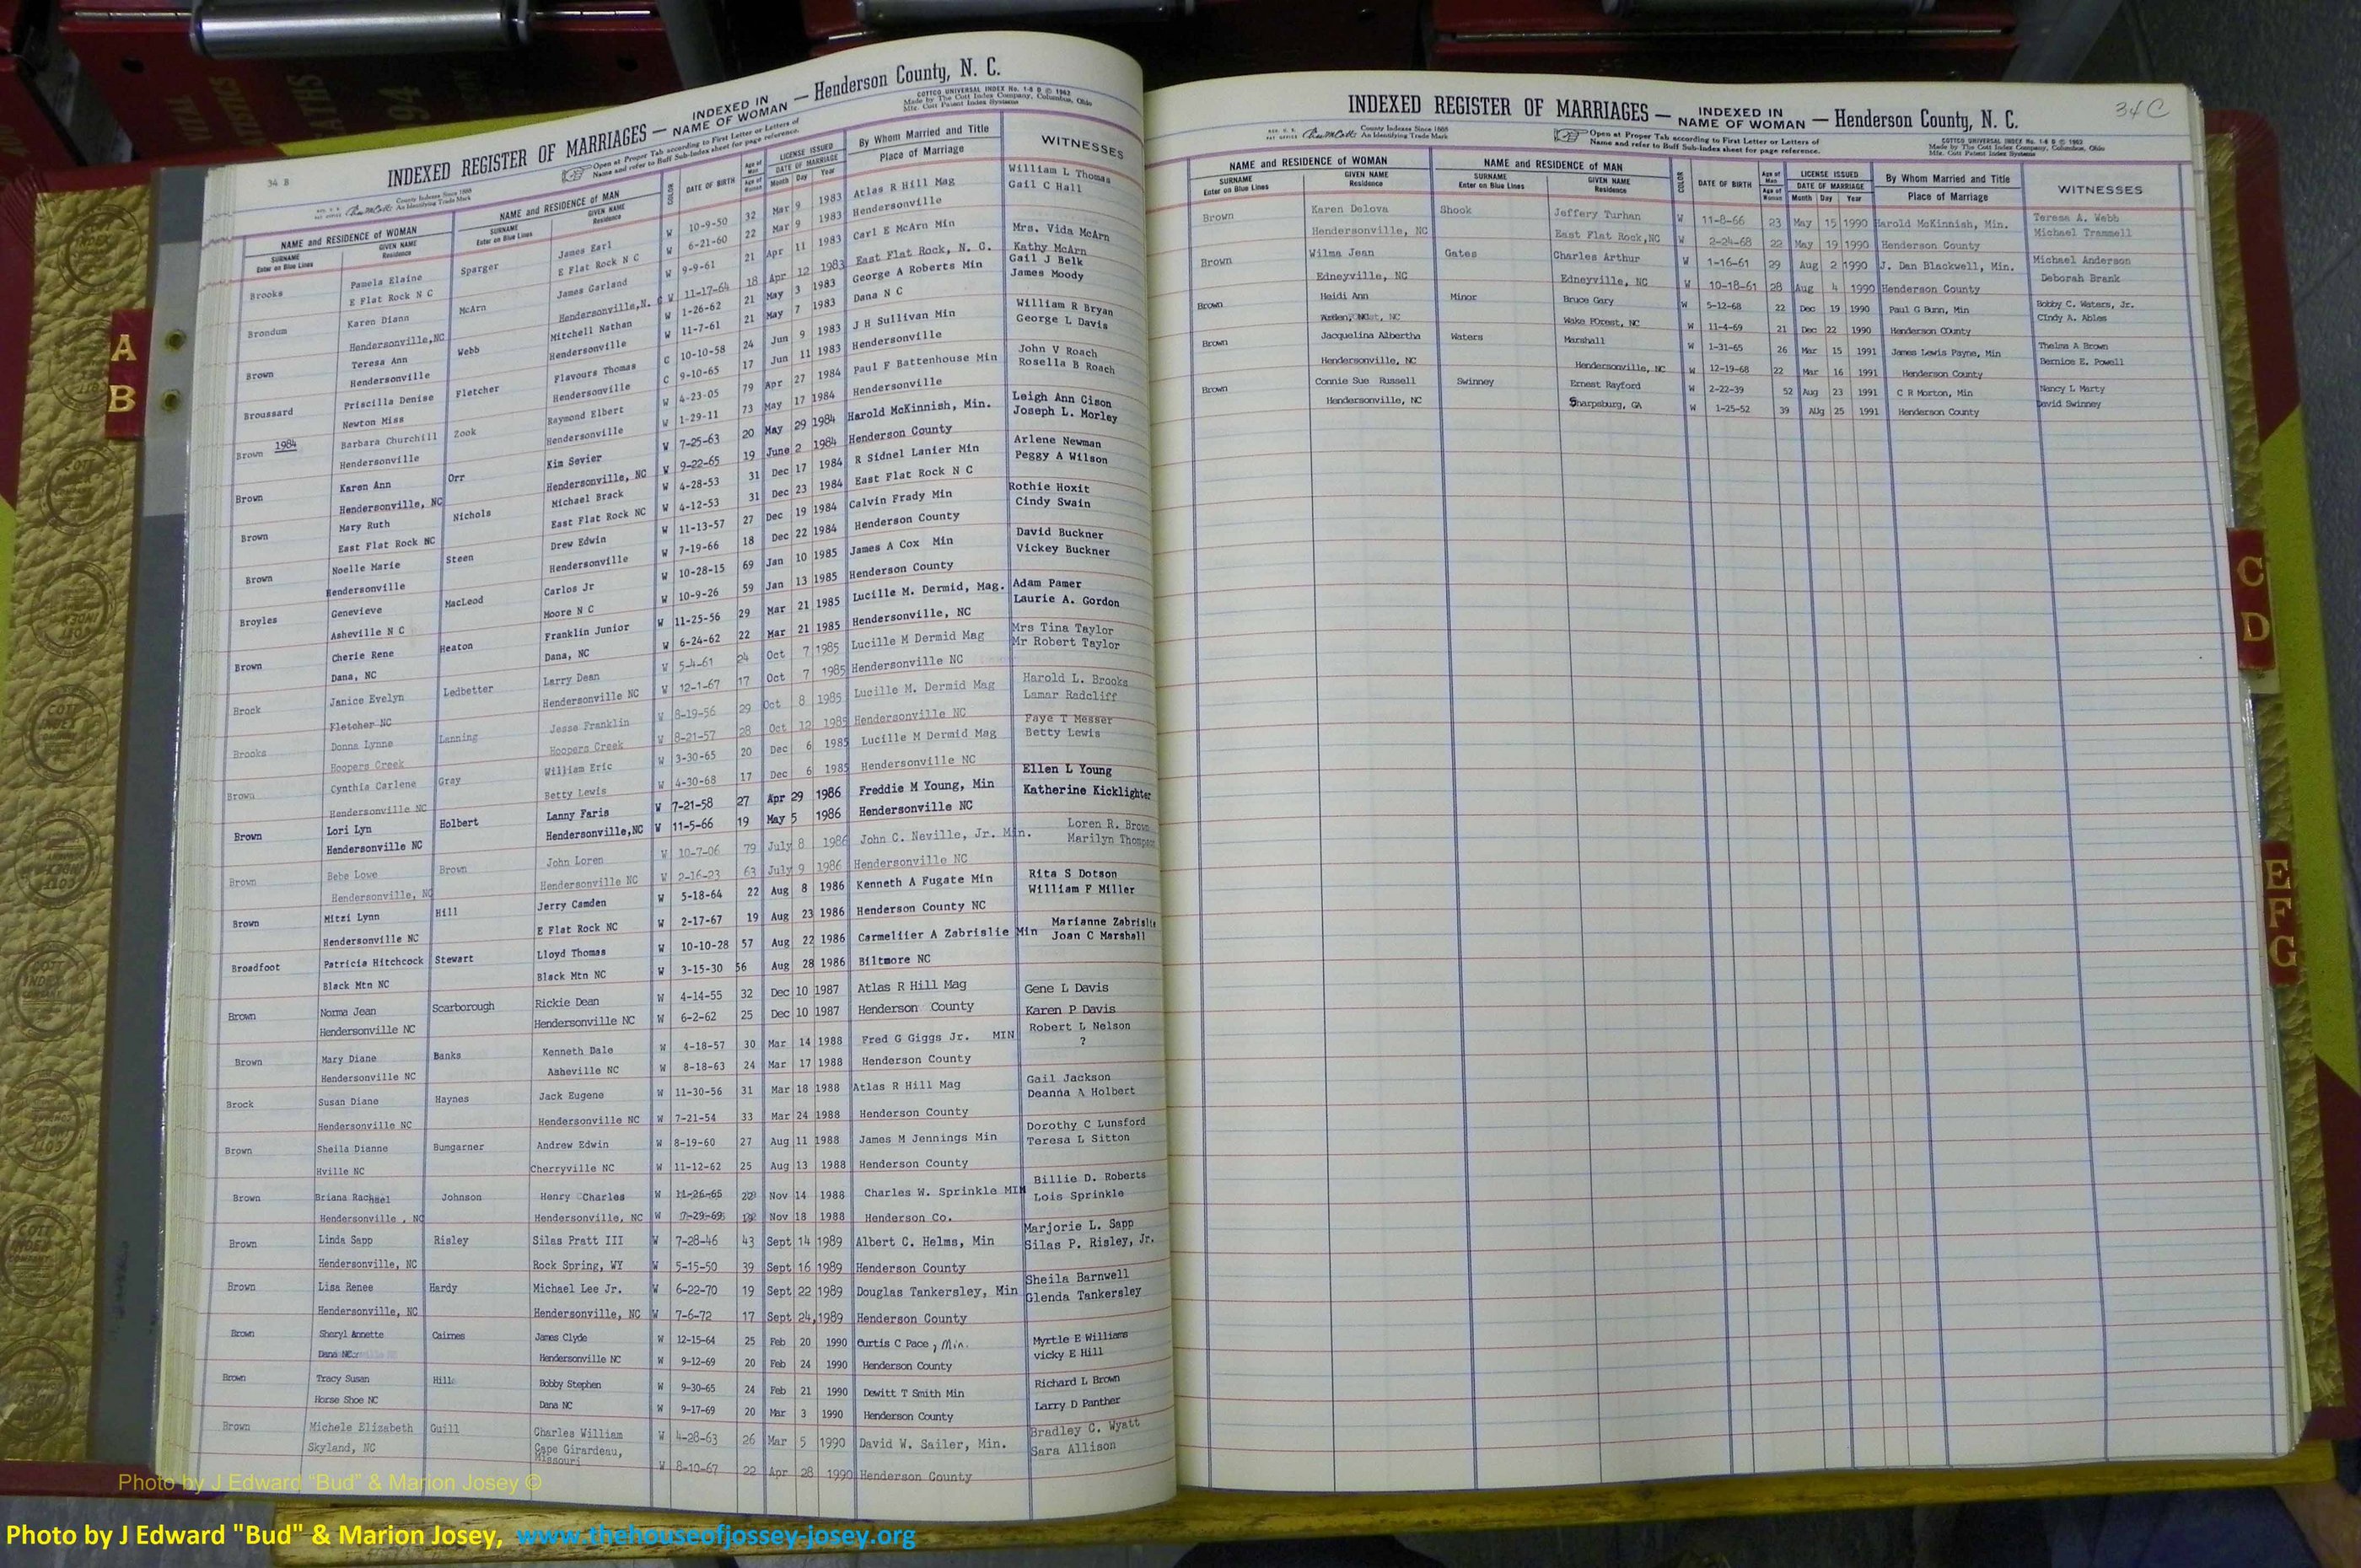 34 B
INDEXED REGISTER OF MARRIAGES — INDEXED IN NAME OF WOMAN — Henderson County, N. C.
County Indexes Since 1888
An Identifying Trade Mark
Open at Proper Tab according to First Letter or Letters of
Name and refer to Buff Sub-Index sheet for page reference.
COTTCO UNIVERSAL INDEX No. 1-8 D © 1962
Made by The Cott Index Company, Columbus, Ohio
Mfg. Cott Patent Index Systems
NAME and RESIDENCE OF WOMAN NAME and RESIDENCE OF MAN COLOR DATE OF BIRTH Age of Man LICENSE ISSUED By Whom Married and Title WITNESSES
SURNAME Enter on Blue Lines GIVEN NAME Residence SURNAME Enter on Blue Lines GIVEN NAME Residence Age of Woman DATE OF MARRIAGE Month Day Year Place of Marriage
Brooks Pamela Elaine Sparger James Earl W 10-9-50 32 Mar 9 1983 Atlas R Hill Mag William L Thomas
E Flat Rock N C E Flat Rock N C W 6-21-60 22 Mar 9 1983 Hendersonville Gail C Hall
Brondum Karen Diann McArn James Garland W 9-9-61 21 Apr 11 1983 Carl E McArn Min Mrs. Vida McArn
Hendersonville,NC Hendersonville,N. C W 11-17-64 18 Apr 12 1983 East Flat Rock, N. C. Kathy McArn
Brown Teresa Ann Webb Mitchell Nathan W 1-26-62 21 May 3 1983 George A Roberts Min Gail J Belk
Hendersonville Hendersonville W 11-7-61 21 May 7 1983 Dana N C James Moody
Broussard Priscilla Denise Fletcher Flavours Thomas C 10-10-58 24 Jun 9 1983 J H Sullivan Min William R Bryan
Newton Miss Hendersonville C 9-10-65 17 Jun 11 1983 Hendersonville George L Davis
1984
Brown Barbara Churchill Zook Raymond Elbert W 4-23-05 79 Apr 27 1984 Paul F Battenhouse Min John V Roach
Hendersonville Hendersonville W 1-29-11 73 May 17 1984 Hendersonville Rosella B Roach
Brown Karen Ann Orr Kim Sevier W 7-25-63 20 May 29 1984 Harold McKinnish, Min. Leigh Ann Cison
Hendersonville, NC Hendersonville, NC W 9-22-65 19 June 2 1984 Henderson County Joseph L. Morley
Brown Mary Ruth Nichols Michael Brack W 4-28-53 31 Dec 17 1984 R Sidnel Lanier Min Arlene Newman
East Flat Rock NC East Flat Rock NC W 4-12-53 31 Dec 23 1984 East Flat Rock N C Peggy A Wilson
Brown Noelle Marie Steen Drew Edwin W 11-13-57 27 Dec 19 1984 Calvin Frady Min Rothie Hoxit
Hendersonville Hendersonville W 7-19-66 18 Dec 22 1984 Henderson County Cindy Swain
Broyles Genevieve MacLeod Carlos Jr W 10-28-15 69 Jan 10 1985 James A Cox Min David Buckner
Asheville N C Moore N C W 10-9-26 59 Jan 13 1985 Henderson County Vickey Buckner
Brown Cherie Rene Heaton Franklin Junior W 11-25-56 29 Mar 21 1985 Lucille M. Dermid, Mag. Adam Pamer
Dana, NC Dana, NC W 6-24-62 22 Mar 21 1985 Hendersonville, NC Laurie A. Gordon
Brock Janice Evelyn Ledbetter Larry Dean W 5-4-61 24 Oct 7 1985 Lucille M Dermid Mag Mrs Tina Taylor
Fletcher NC Hendersonville NC W 12-1-67 17 Oct 7 1985 Hendersonville NC Mr Robert Taylor
Brooks Donna Lynne Lanning Jesse Franklin W 8-19-56 29 Oct 8 1985 Lucille M. Dermid Mag Harold L. Brooks
Hoopers Creek Hoopers Creek W 8-21-57 28 Oct 12 1985 Hendersonville NC Lamar Radcliff
Brown Cynthia Carlene Gray William Eric W 3-30-65 20 Dec 6 1985 Lucille M Dermid Mag Faye T Messer
Hendersonville NC Betty Lewis W 4-30-68 17 Dec 6 1985 Hendersonville NC Betty Lewis
Brown Lori Lyn Holbert Lanny Faris W 7-21-58 27 Apr 29 1986 Freddie M Young, Min Ellen L Young
Hendersonville NC Hendersonville,NC W 11-5-66 19 May 5 1986 Hendersonville NC Katherine Kicklighter
Brown Bebe Lowe Brown John Loren W 10-7-06 79 July 8 1986 John C. Neville, Jr. Min. Loren R. Brown
Hendersonville, NC Hendersonville NC W 2-16-23 63 July 9 1986 Hendersonville NC Marilyn Thompson
Brown Mitzi Lynn Hill Jerry Camden W 5-18-64 22 Aug 8 1986 Kenneth A Fugate Min Rita S Dotson
Hendersonville NC E Flat Rock NC W 2-17-67 19 Aug 23 1986 Henderson County NC William F Miller
Broadfoot Patricia Hitchcock Stewart Lloyd Thomas W 10-10-28 57 Aug 22 1986 Carmeliier A Zabrislie Min Marianne Zabrislie
Black Mtn NC Black Mtn NC W 3-15-30 56 Aug 28 1986 Biltmore NC Joan C Marshall
Brown Norma Jean Scarborough Rickie Dean W 4-14-55 32 Dec 10 1987 Atlas R Hill Mag Gene L Davis
Hendersonville NC Hendersonville NC W 6-2-62 25 Dec 10 1987 Henderson County Karen P Davis
Brown Mary Diane Banks Kenneth Dale W 4-18-57 30 Mar 14 1988 Fred G Giggs Jr. MIN Robert L Nelson
Hendersonville NC Asheville NC W 8-18-63 24 Mar 17 1988 Henderson County ?
Brock Susan Diane Haynes Jack Eugene W 11-30-56 31 Mar 18 1988 Atlas R Hill Mag Gail Jackson
Hendersonville NC Hendersonville NC W 7-21-54 33 Mar 24 1988 Henderson County Deanna A Holbert
Brown Sheila Dianne Bumgarner Andrew Edwin W 8-19-60 27 Aug 11 1988 James M Jennings Min Dorothy C Lunsford
Hville NC Cherryville NC W 11-12-62 25 Aug 13 1988 Henderson County Teresa L Sitton
Brown Briana Rachael Johnson Henry Charles W 11-26-65 Nov 14 1988 Charles W. Sprinkle MIN Billie D. Roberts
Hendersonville , NC Hendersonville, NC W 7-29-69 Nov 18 1988 Henderson Co. Lois Sprinkle
Brown Linda Sapp Risley Silas Pratt III W 7-28-46 43 Sept 14 1989 Albert C. Helms, Min Marjorie L. Sapp
Hendersonville, NC Rock Spring, WY W 5-15-50 39 Sept 16 1989 Henderson County Silas P. Risley, Jr.
Brown Lisa Renee Hardy Michael Lee Jr. W 6-22-70 19 Sept 22 1989 Douglas Tankersley, Min Sheila Barnwell
Hendersonville, NC Hendersonville, NC W 7-6-72 17 Sept 24,1989 Henderson County Glenda Tankersley
Brown Sheryl Annette Cairnes James Clyde W 12-15-64 25 Feb 20 1990 Curtis C Pace, Min. Myrtle E Williams
Dana NC Hendersonville NC W 9-12-69 20 Feb 24 1990 Henderson County vicky E Hill
Brown Tracy Susan Hill Bobby Stephen W 9-30-65 24 Feb 21 1990 Dewitt T Smith Min Richard L Brown
Horse Shoe NC Dana NC W 9-17-69 20 Mar 3 1990 Henderson County Larry D Panther
Brown Michele Elizabeth Guill Charles William W 4-28-63 26 Mar 5 1990 David W. Sailer, Min. Bradley C. Wyatt
Skyland, NC Cape Girardeau, Missouri W 8-10-67 22 Apr 28 1990 Henderson County Sara Allison
34 C
INDEXED REGISTER OF MARRIAGES — INDEXED IN NAME OF WOMAN — Henderson County, N. C.
County Indexes Since 1888
An Identifying Trade Mark
Open at Proper Tab according to First Letter or Letters of
Name and refer to Buff Sub-Index sheet for page reference.
COTTCO UNIVERSAL INDEX No. 1-8 D © 1962
Made by The Cott Index Company, Columbus, Ohio
Mfg. Cott Patent Index Systems
NAME and RESIDENCE OF WOMAN NAME and RESIDENCE OF MAN COLOR DATE OF BIRTH Age of Man LICENSE ISSUED By Whom Married and Title WITNESSES
SURNAME Enter on Blue Lines GIVEN NAME Residence SURNAME Enter on Blue Lines GIVEN NAME Residence Age of Woman DATE OF MARRIAGE Month Day Year Place of Marriage
Brown Karen Delova Shook Jeffery Turhan W 11-8-66 23 May 15 1990 Harold McKinnish, Min. Teresa A. Webb
Hendersonville, NC East Flat Rock,NC W 2-24-68 22 May 19 1990 Henderson County Michael Trammell
Brown Wilma Jean Gates Charles Arthur W 1-16-61 29 Aug 2 1990 J. Dan Blackwell, Min. Michael Anderson
Edneyville, NC Edneyville, NC W 10-18-61 28 Aug 4 1990 Henderson County Deborah Brank
Brown Heidi Ann Minor Bruce Gary W 5-12-68 22 Dec 19 1990 Paul G Bunn, Min Bobby C. Waters, Jr.
Wake FOrest, NC W 11-4-69 21 Dec 22 1990 Henderson COunty CIndy A. Ables
Brown Jacquelina Albertha Waters Marshall W 1-31-65 26 Mar 15 1991 James Lewis Payne, Min Thelma A Brown
Hendersonville, NC Hendersonville, NC W 12-19-68 22 Mar 16 1991 Henderson County Bernice E. Powell
Brown Connie Sue Russell Swinney Ernest Rayford W 2-22-39 52 Aug 23 1991 C R Morton, Min Nancy L Marty
Hendersonville, NC Sharpsburg, GA W 1-25-52 39 AUg 25 1991 Henderson County David Swinney
A
B
C
D
E
F
G
Photo by J Edward "Bud" & Marion Josey ©
Photo by J Edward "Bud" & Marion Josey, www.thehouseofjossey-josey.org